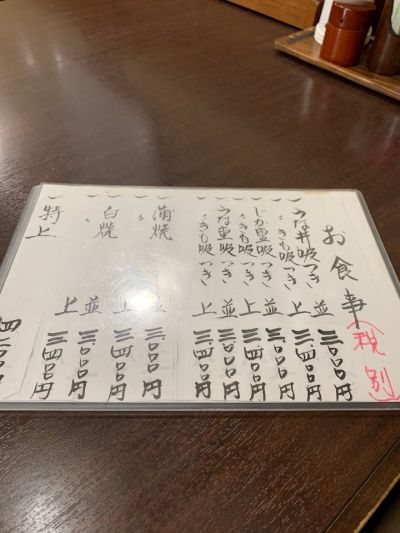 お食事(税別)
一、うな丼吸つき 並 三、〇〇〇円
一、〃きも吸つき 上 三、四〇〇円
一、しか重吸つき 並 三、〇〇〇円
一、〃きも吸つき 上 三、四〇〇円
一、うな重吸つき 並 三、〇〇〇円
一、〃きも吸つき 上 三、四〇〇円
一、蒲焼 三、〇〇〇円
一、〃 上 三、四〇〇円
一、白焼 並 三、〇〇〇円
一、〃 上 三、四〇〇円
一、特上